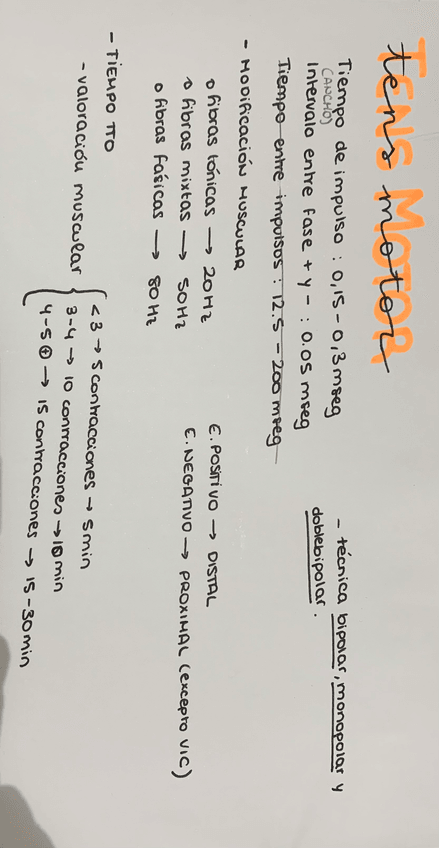 TENS MOTOR
tens motor
Tiempo de impulso : 0,15 - 0,3 mseg
(ANCHO)
Intervalo entre fase + y - : 0.05 mseg
Tiempo entre impulsos : 12.5 - 200 mseg
- técnica bipolar, monopolar y
doblebipolar.
- MODIFICACIÓN MUSCULAR
o fibras tónicas → 20Hz
o fibras mixtas → 50Hz
o fibras fásicas → 80Hz
E. POSITIVO → DISTAL
E. NEGATIVO → PROXIMAL (excepto VIC)
- TIEMPO TTO
- valoración muscular
<3 → 5 contracciones → 5 min
3-4 → 10 contracciones → 10 min
4-5 ⊕ → 15 contracciones → 15 - 30min